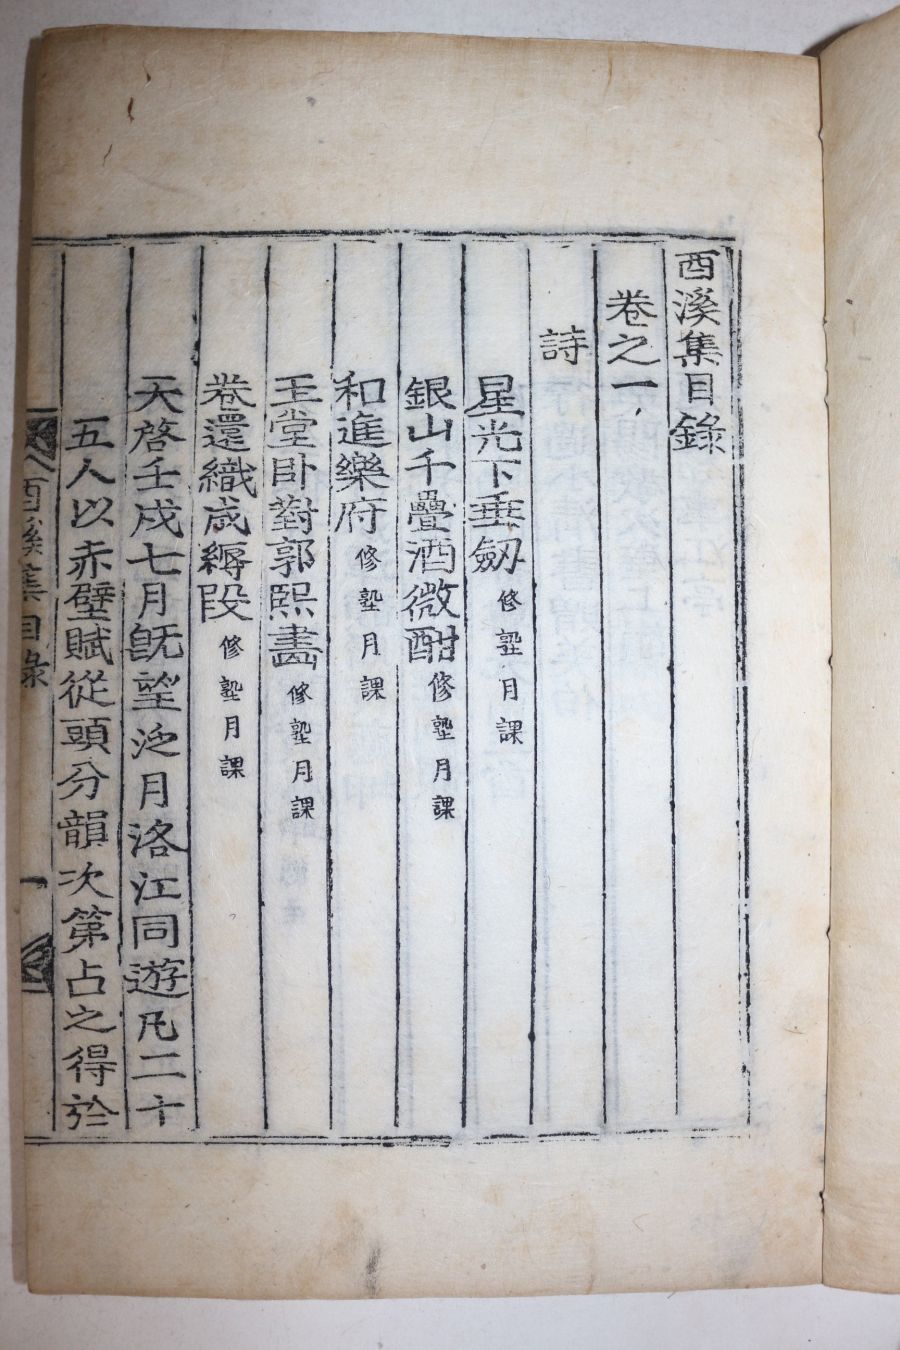 酉溪集目錄
卷之一
詩
星光下垂劒 修塾月課
銀山千疊酒微酣 修塾月課
和進樂府 修塾月課
玉堂卧對郭熙畵 修塾月課
卷還織成縟段 修塾月課
天啓壬戌七月旣望泛月洛江同遊凡二十
五人以赤壁賦從頭分韻次第占之得於
酉溪集目錄 一